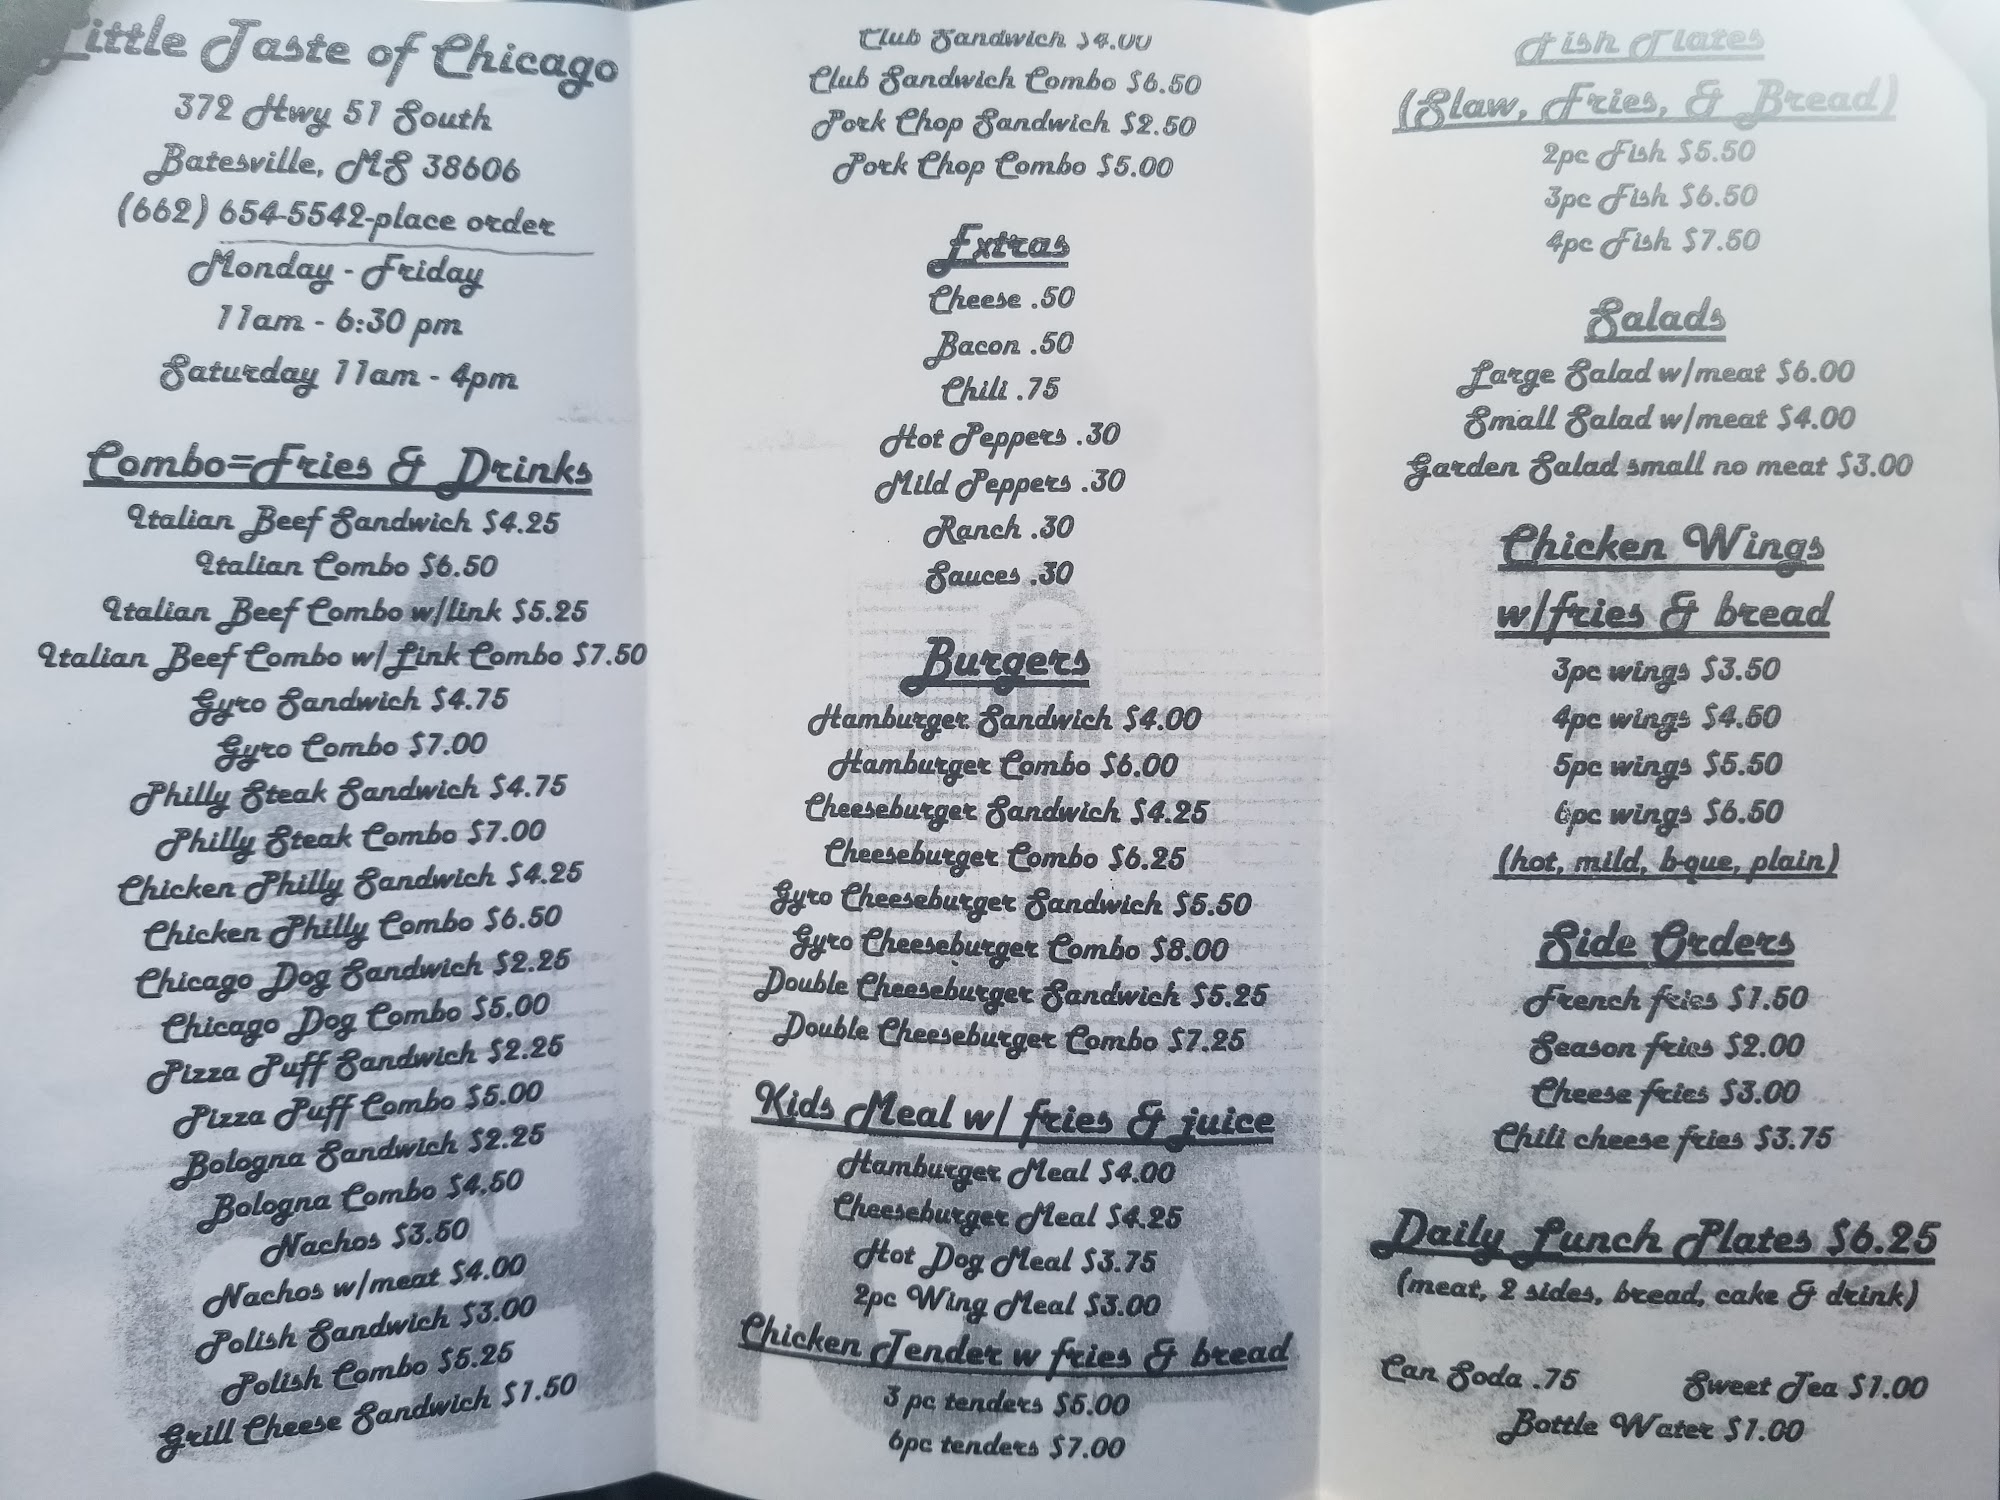 Little Taste of Chicago
372 Hwy 51 South
Batesville, MS 38606
(662) 654-5542-place order
Monday - Friday
11am - 6:30 pm
Saturday 11am - 4pm
Combo=Fries & Drinks
Italian Beef Sandwich $4.25
Italian Combo $6.50
Italian Beef Combo w/link $5.25
Italian Beef Combo w/Link Combo $7.50
Gyro Sandwich $4.75
Gyro Combo $7.00
Philly Steak Sandwich $4.75
Philly Steak Combo $7.00
Chicken Philly Sandwich $4.25
Chicken Philly Combo $6.50
Chicago Dog Sandwich $2.25
Chicago Dog Combo $5.00
Pizza Puff Sandwich $2.25
Pizza Puff Combo $5.00
Bologna Sandwich $2.25
Bologna Combo $4.50
Nachos $3.50
Nachos w/meat $4.00
Polish Sandwich $3.00
Polish Combo $5.25
Grill Cheese Sandwich $1.50
Club Sandwich $4.00
Club Sandwich Combo $6.50
Pork Chop Sandwich $2.50
Pork Chop Combo $5.00
Extras
Cheese .50
Bacon .50
Chili .75
Hot Peppers .30
Mild Peppers .30
Ranch .30
Sauces .30
Burgers
Hamburger Sandwich $4.00
Hamburger Combo $6.00
Cheeseburger Sandwich $4.25
Cheeseburger Combo $6.25
Gyro Cheeseburger Sandwich $5.50
Gyro Cheeseburger Combo $8.00
Double Cheeseburger Sandwich $5.25
Double Cheeseburger Combo $7.25
Kids Meal w/ fries & juice
Hamburger Meal $4.00
Cheeseburger Meal $4.25
Hot Dog Meal $3.75
2pc Wing Meal $3.00
Chicken Tender w fries & bread
3 pc tenders $5.00
6pc tenders $7.00
Fish Plates
(Slaw, Fries, & Bread)
2pc Fish $5.50
3pc Fish $6.50
4pc Fish $7.50
Salads
Large Salad w/meat $6.00
Small Salad w/meat $4.00
Garden Salad small no meat $3.00
Chicken Wings
w/fries & bread
3pc wings $3.50
4pc wings $4.50
5pc wings $5.50
6pc wings $6.50
(hot, mild, b-que, plain)
Side Orders
French fries $1.50
Season fries $2.00
Cheese fries $3.00
Chili cheese fries $3.75
Daily Lunch Plates $6.25
(meat, 2 sides, bread, cake & drink)
Can Soda .75 Sweet Tea $1.00
Bottle Water $1.00